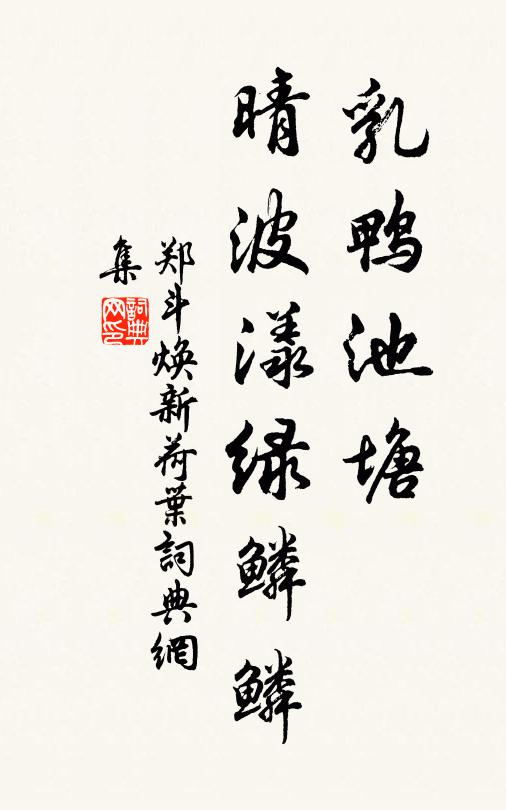 乳鸭池塘
晴波漾绿鳞鳞
郑斗焕新荷葉詞典網
集
詞典网印